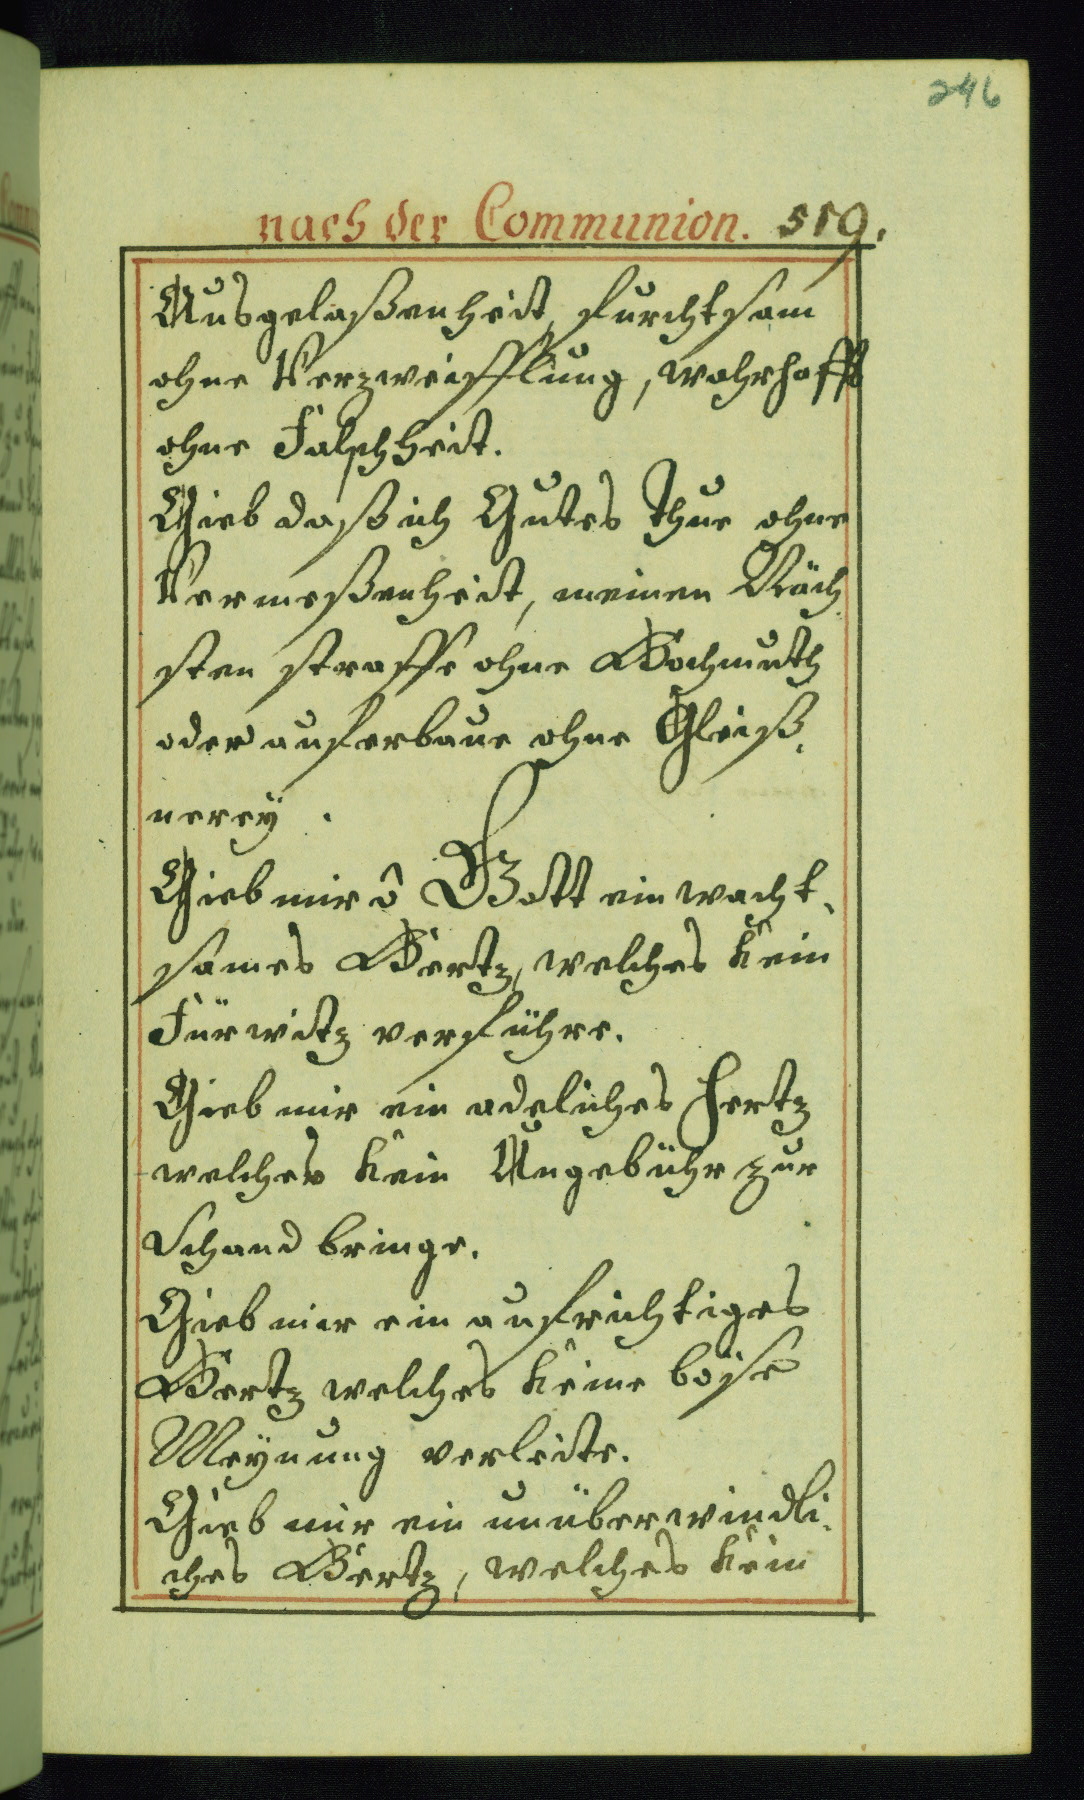 246
nach der Communion. 519.
Ausgelaßenheit, furchtsam
ohne Verzweifflung, wahrhafft
ohne Falschheit.
Gieb daß ich Gutes thue ohne
Vermeßenheit, meinen Näch
sten straffe ohne Hochmuth
oder auferbaue ohne Gleiß,
nereÿ.
Gieb mir ô Gott ein wacht,
sames Hertz, welches kein
Fürwitz verführe.
Gieb mir ein adeliches Hertz
welches kein Ungebühr zur
Schand bringe.
Gieb mir ein aufrichtiges
Hertz welches keine böse
Meÿnung verleite.
Gieb mir ein unüberwindli,
ches Hertz, welches kein